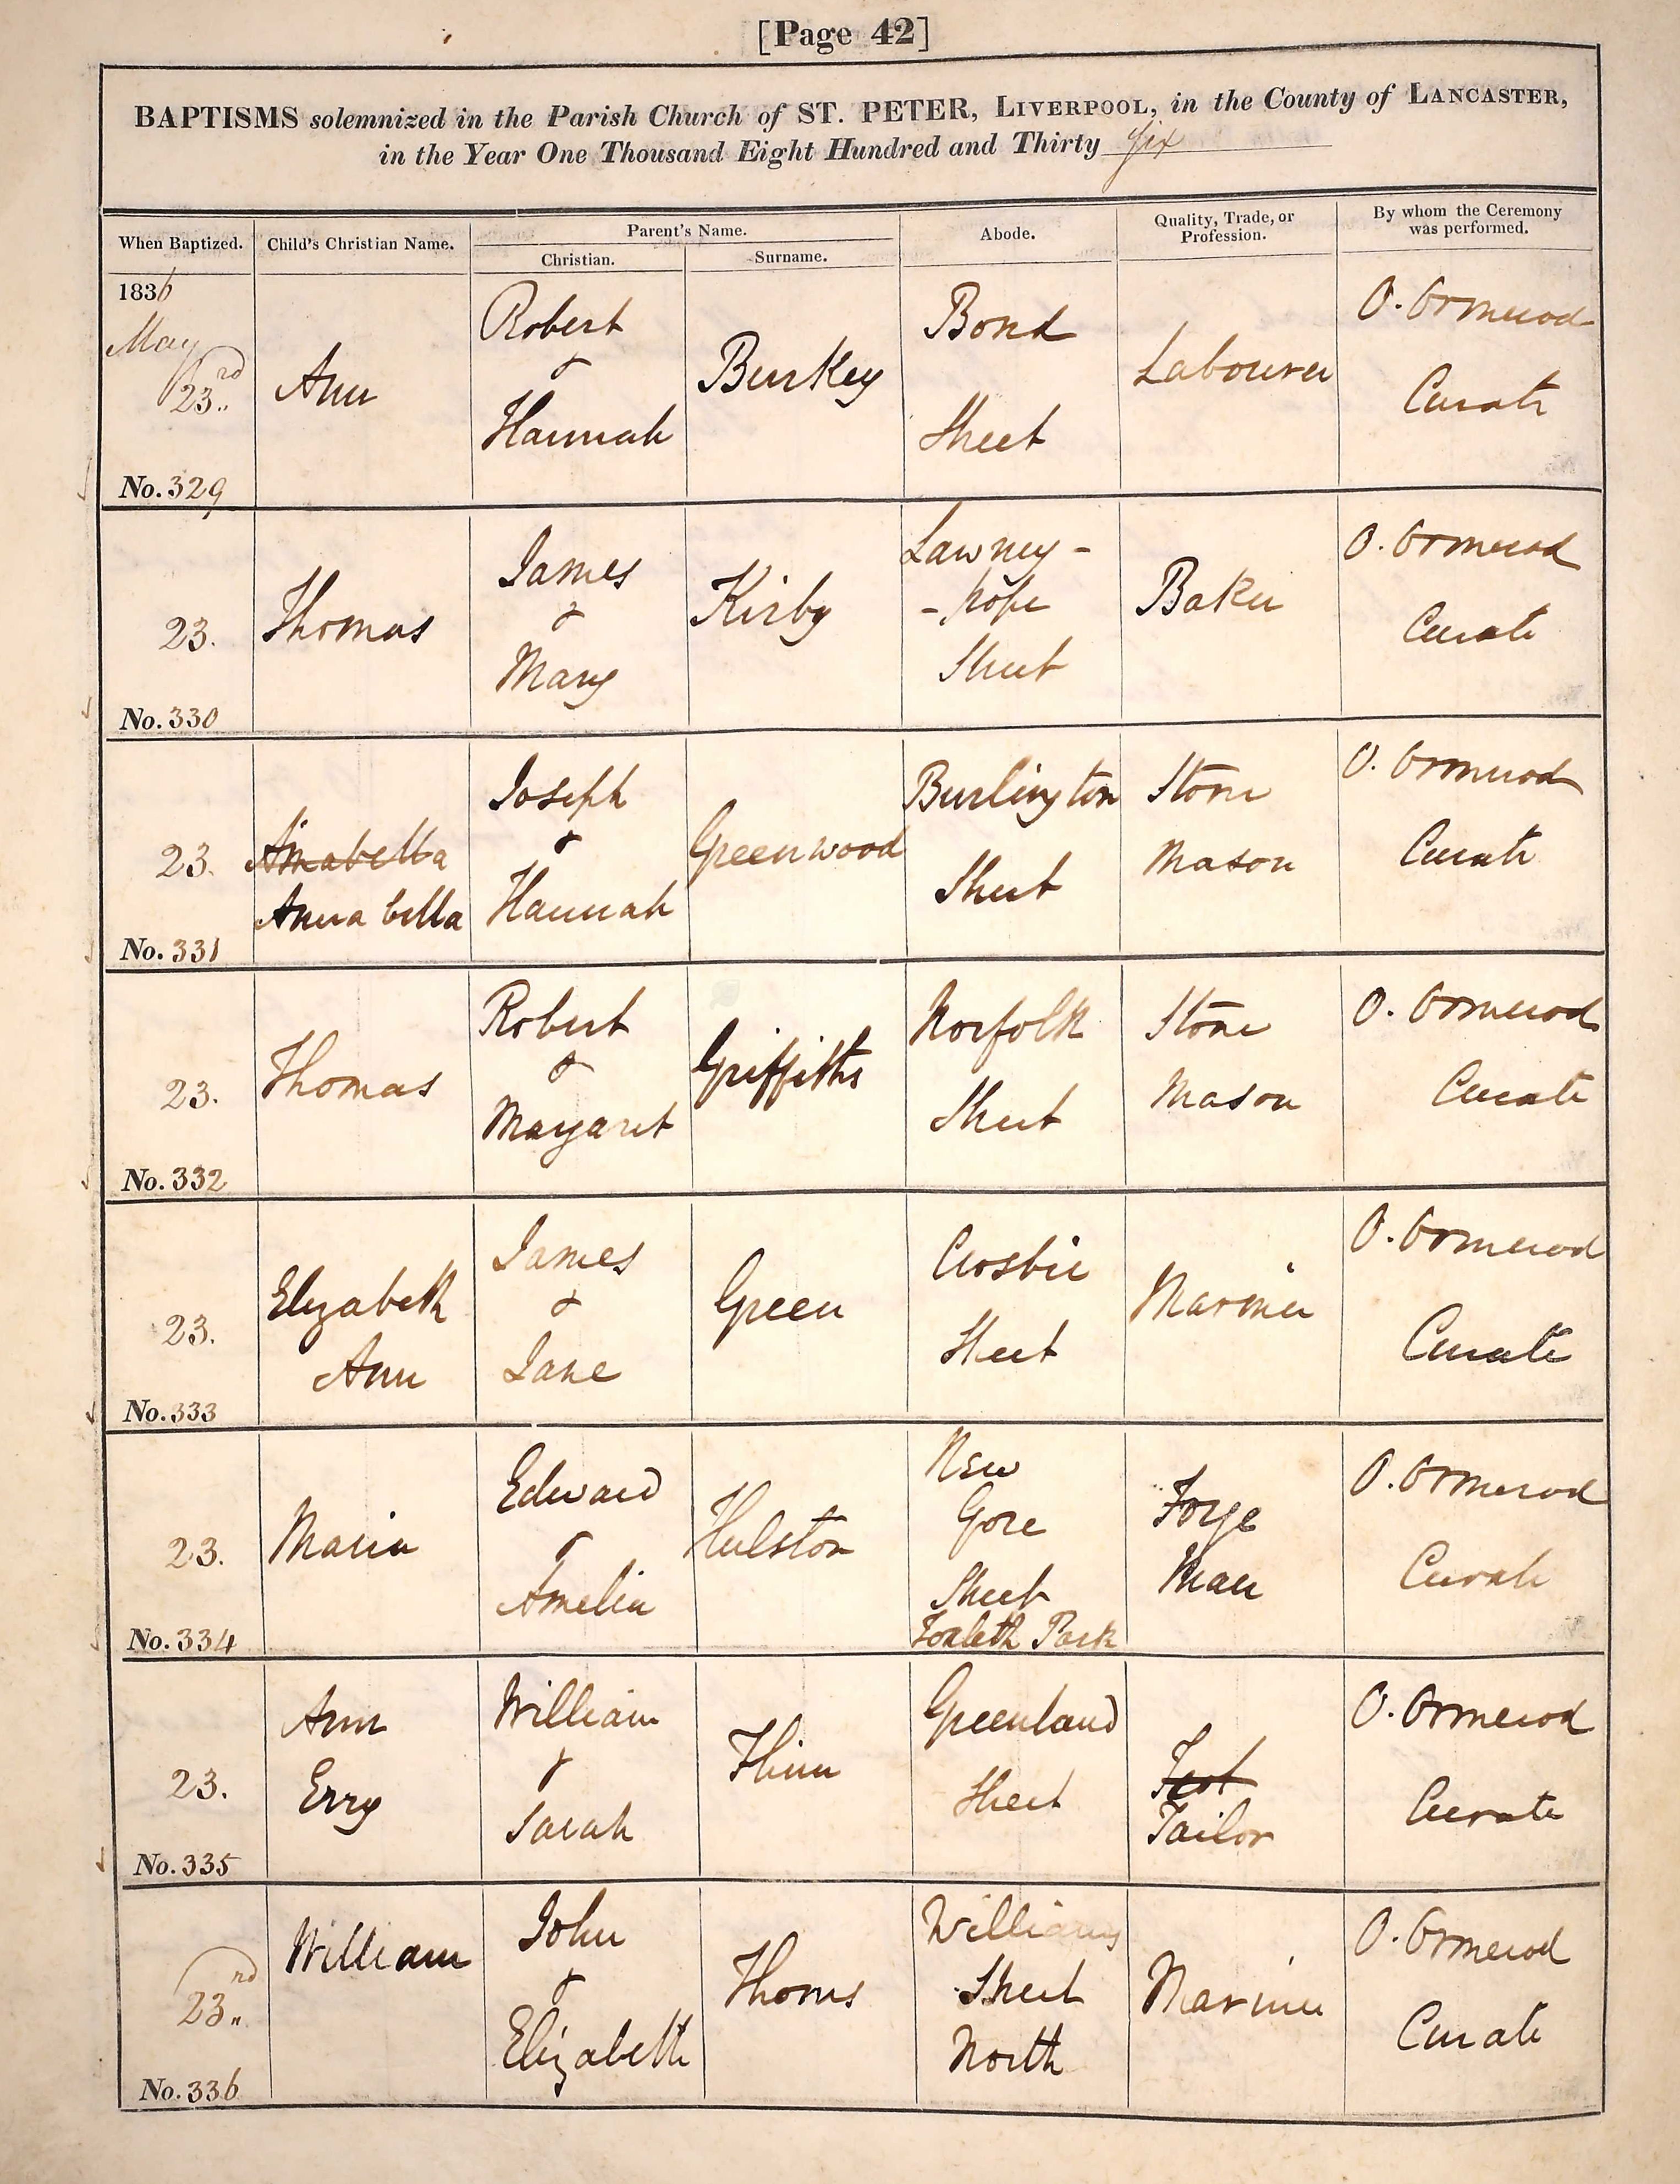 [Page 42]
BAPTISMS solemnized in the Parish Church of ST. PETER, LIVERPOOL, in the County of LANCASTER,
in the Year One Thousand Eight Hundred and Thirty Six
When Baptized.
Child's Christian Name.
Parent's Name.
Christian.
Surname.
Abode.
Quality, Trade, or
Profession.
By whom the Ceremony
was performed.
1836
May
23rd
No. 329
Ann
Robert
&
Hannah
Burkey
Bond
Street
Labourer
O. Ormerod
Curate
23.
No. 330
Thomas
James
&
Mary
Kirby
-
Street
Baker
O. Ormerod
Curate
23.
No. 331
Annabella
Joseph
&
Hannah
Greenwood
Burlington
Street
Stone
Mason
O. Ormerod
Curate
23.
No. 332
Thomas
Robert
&
Margaret
Griffiths
Norfolk
Street
Stone
Mason
O. Ormerod
Curate
23.
No. 333
Elizabeth
Ann
James
&
Jane
Green
Crosbie
Street
Mariner
O. Ormerod
Curate
23.
No. 334
Maria
Edward
&
Amelia
Hulston
New
Gore
Street
Toxteth Park
Forge
Man
O. Ormerod
Curate
23.
No. 335
Ann
Erry
William
&
Sarah
Greenland
Street
Tailor
O. Ormerod
Curate
23rd
No. 336
William
John
&
Elizabeth
Thoms
Williams
Street
North
Mariner
O. Ormerod
Curate